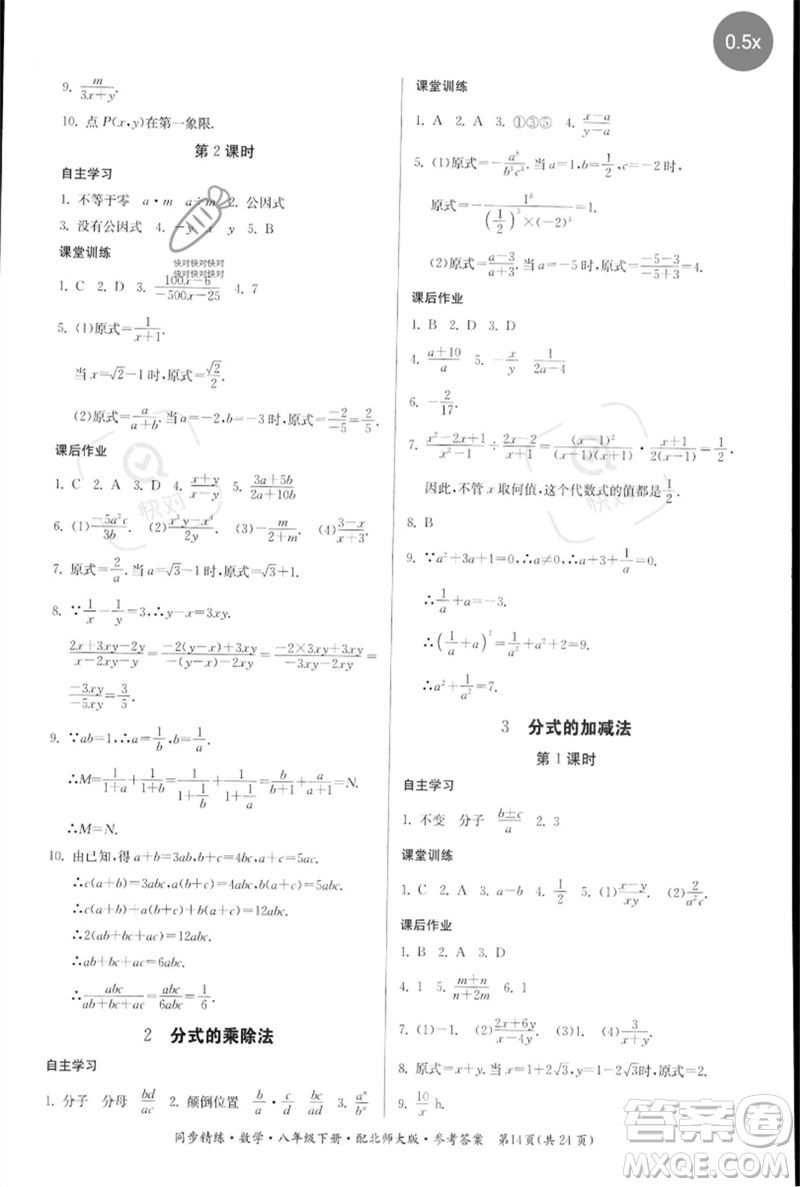 9. m/(3x+y).
10. 点P(x,y)在第一象限.
第2课时
自主学习
1. 不等于零 a·m a÷m 2. 公因式
3. 没有公因式 4. -y x y 5. B
课堂训练
1. C 2. D 3. (100x-6)/(-500x-25) 4. 7
5. (1)原式=1/(x+1).
当x=√2-1时,原式=√2/2.
(2)原式=a/(a+b).当a=-2,b=-3时,原式=(-2)/(-5)=2/5.
课后作业
1. C 2. A 3. D 4. (x+y)/(x-y) 5. (3a+5b)/(2a+10b)
6. (1)(-5a²c)/(3b) (2)(x³y-x⁴)/(2y) (3)-m/(m+2) (4)(3-x)/(x+3)
7. 原式=2/a.当a=√3-1时,原式=√3+1.
8. ∵1/x-1/y=3,∴y-x=3xy.
(2x+3xy-2y)/(x-2xy-y)=(-2(y-x)+3xy)/(-(y-x)-2xy)=(-2×3xy+3xy)/(-3xy-2xy)=
(-3xy)/(-5xy)=3/5.
9. ∵ab=1,∴a=1/b,b=1/a.
∴M=1/(1+a)+1/(1+b)=1/(1+1/b)+1/(1+1/a)=b/(b+1)+a/(a+1)=N.
∴M=N.
10. 由已知,得a+b=3ab,b+c=4bc,a+c=5ac.
∴c(a+b)=3abc,a(b+c)=4abc,b(a+c)=5abc.
∴c(a+b)+a(b+c)+b(a+c)=12abc.
∴2(ab+bc+ac)=12abc.
∴ab+bc+ac=6abc.
∴abc/(ab+bc+ac)=abc/(6abc)=1/6.
2 分式的乘除法
自主学习
1. 分子 分母 bd/ac 2. 颠倒位置 b/a·c/d bc/ad 3. aⁿ/bⁿ
课堂训练
1. A 2. A 3. ①③⑤ 4. (x-a)/(y-a)
5. (1)原式=-a⁸/(b³c³).当a=1,b=1/2,c=-2时,
原式=-1⁸/((1/2)³×(-2)³)=1.
(2)原式=(a-3)/(a+3).当a=-5时,原式=(-5-3)/(-5+3)=4.
课后作业
1. B 2. D 3. D
4. (a+10)/a 5. -x/y 1/(2a-4)
6. -2/17.
7. (x²-2x+1)/(x²-1)÷(2x-2)/(x+1)=(x-1)²/((x+1)(x-1))·(x+1)/(2(x-1))=1/2.
因此,不管x取何值,这个代数式的值都是1/2.
8. B
9. ∵a²+3a+1=0,∴a+3+1/a=0.
∴1/a+a=-3.
∴(1/a+a)²=1/a²+a²+2=9.
∴a²+1/a²=7.
3 分式的加减法
第1课时
自主学习
1. 不变 分子 (b±c)/a 2. 3
课堂训练
1. C 2. A 3. a-b 4. 1 5. (1)(x-y)/(xy) (2)2/a
课后作业
1. B 2. A 3. D
4. 1 5. (m+n)/(n+2m) 6. 1
7. (1)-1. (2)(2x+6y)/(x-4y). (3)1.
8. 原式=a+1.当a=1+2√3时,原式=2+2√3.
9. 10/x h.
同步精练·数学·八年级下册·配北师大版·参考答案 第14页(共24页)
0.5x
快对快对快对
快对快对快对
快对
快对
答案圈
MXQE.COM